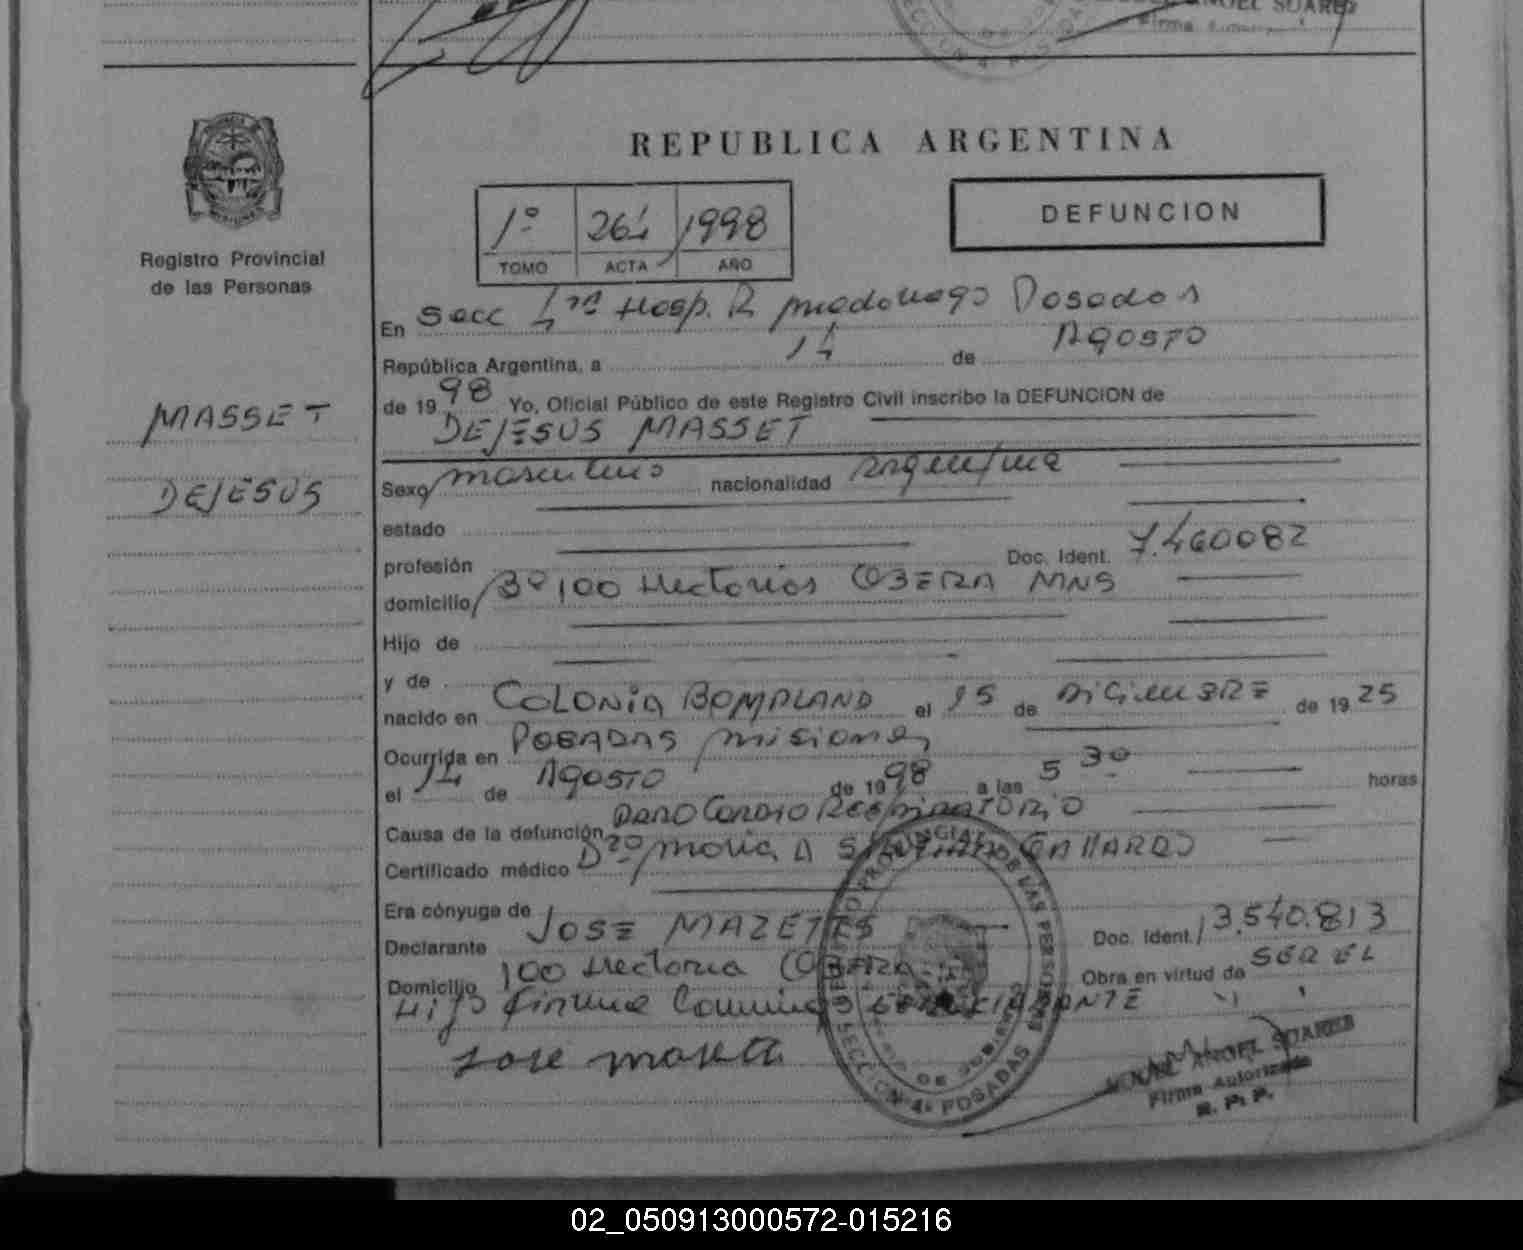 REPUBLICA ARGENTINA
DEFUNCION
1º 264 1998
TOMO ACTA AÑO
Registro Provincial
de las Personas
MASSET
DEJESUS
En Secc 4ta Hosp. R Madariaga Posadas
República Argentina, a 14 de Agosto
de 1998 Yo, Oficial Público de este Registro Civil inscribo la DEFUNCION de
DEJESUS MASSET
Sexo masculino nacionalidad argentina
estado
profesión Doc. Ident. 7.460082
domicilio Bº 100 Hectarias OBERA MNS
Hijo de
y de
nacido en COLONIA BOMPLAND el 15 de DICIEMBRE de 1925
Ocurrida en POSADAS misiones
el 14 de AGOSTO de 1998 a las 5 30 horas
Causa de la defunción PARO Cardio RESPIRATORIO
Certificado médico Dra Maria A GALLARDO
Era cónyuge de
Declarante JOSE MAZETTS Doc. Ident. 13.540.813
Domicilio 100 Hectaria OBERA Obra en virtud de SER EL
Hijo firma Conmigo
Jose masett
REGISTRO PROVINCIAL DE LAS PERSONAS
SECCION 4ª POSADAS
MIGUEL ANGEL SUAREZ
Firma Autorizada
R. P. P.
02_050913000572-015216